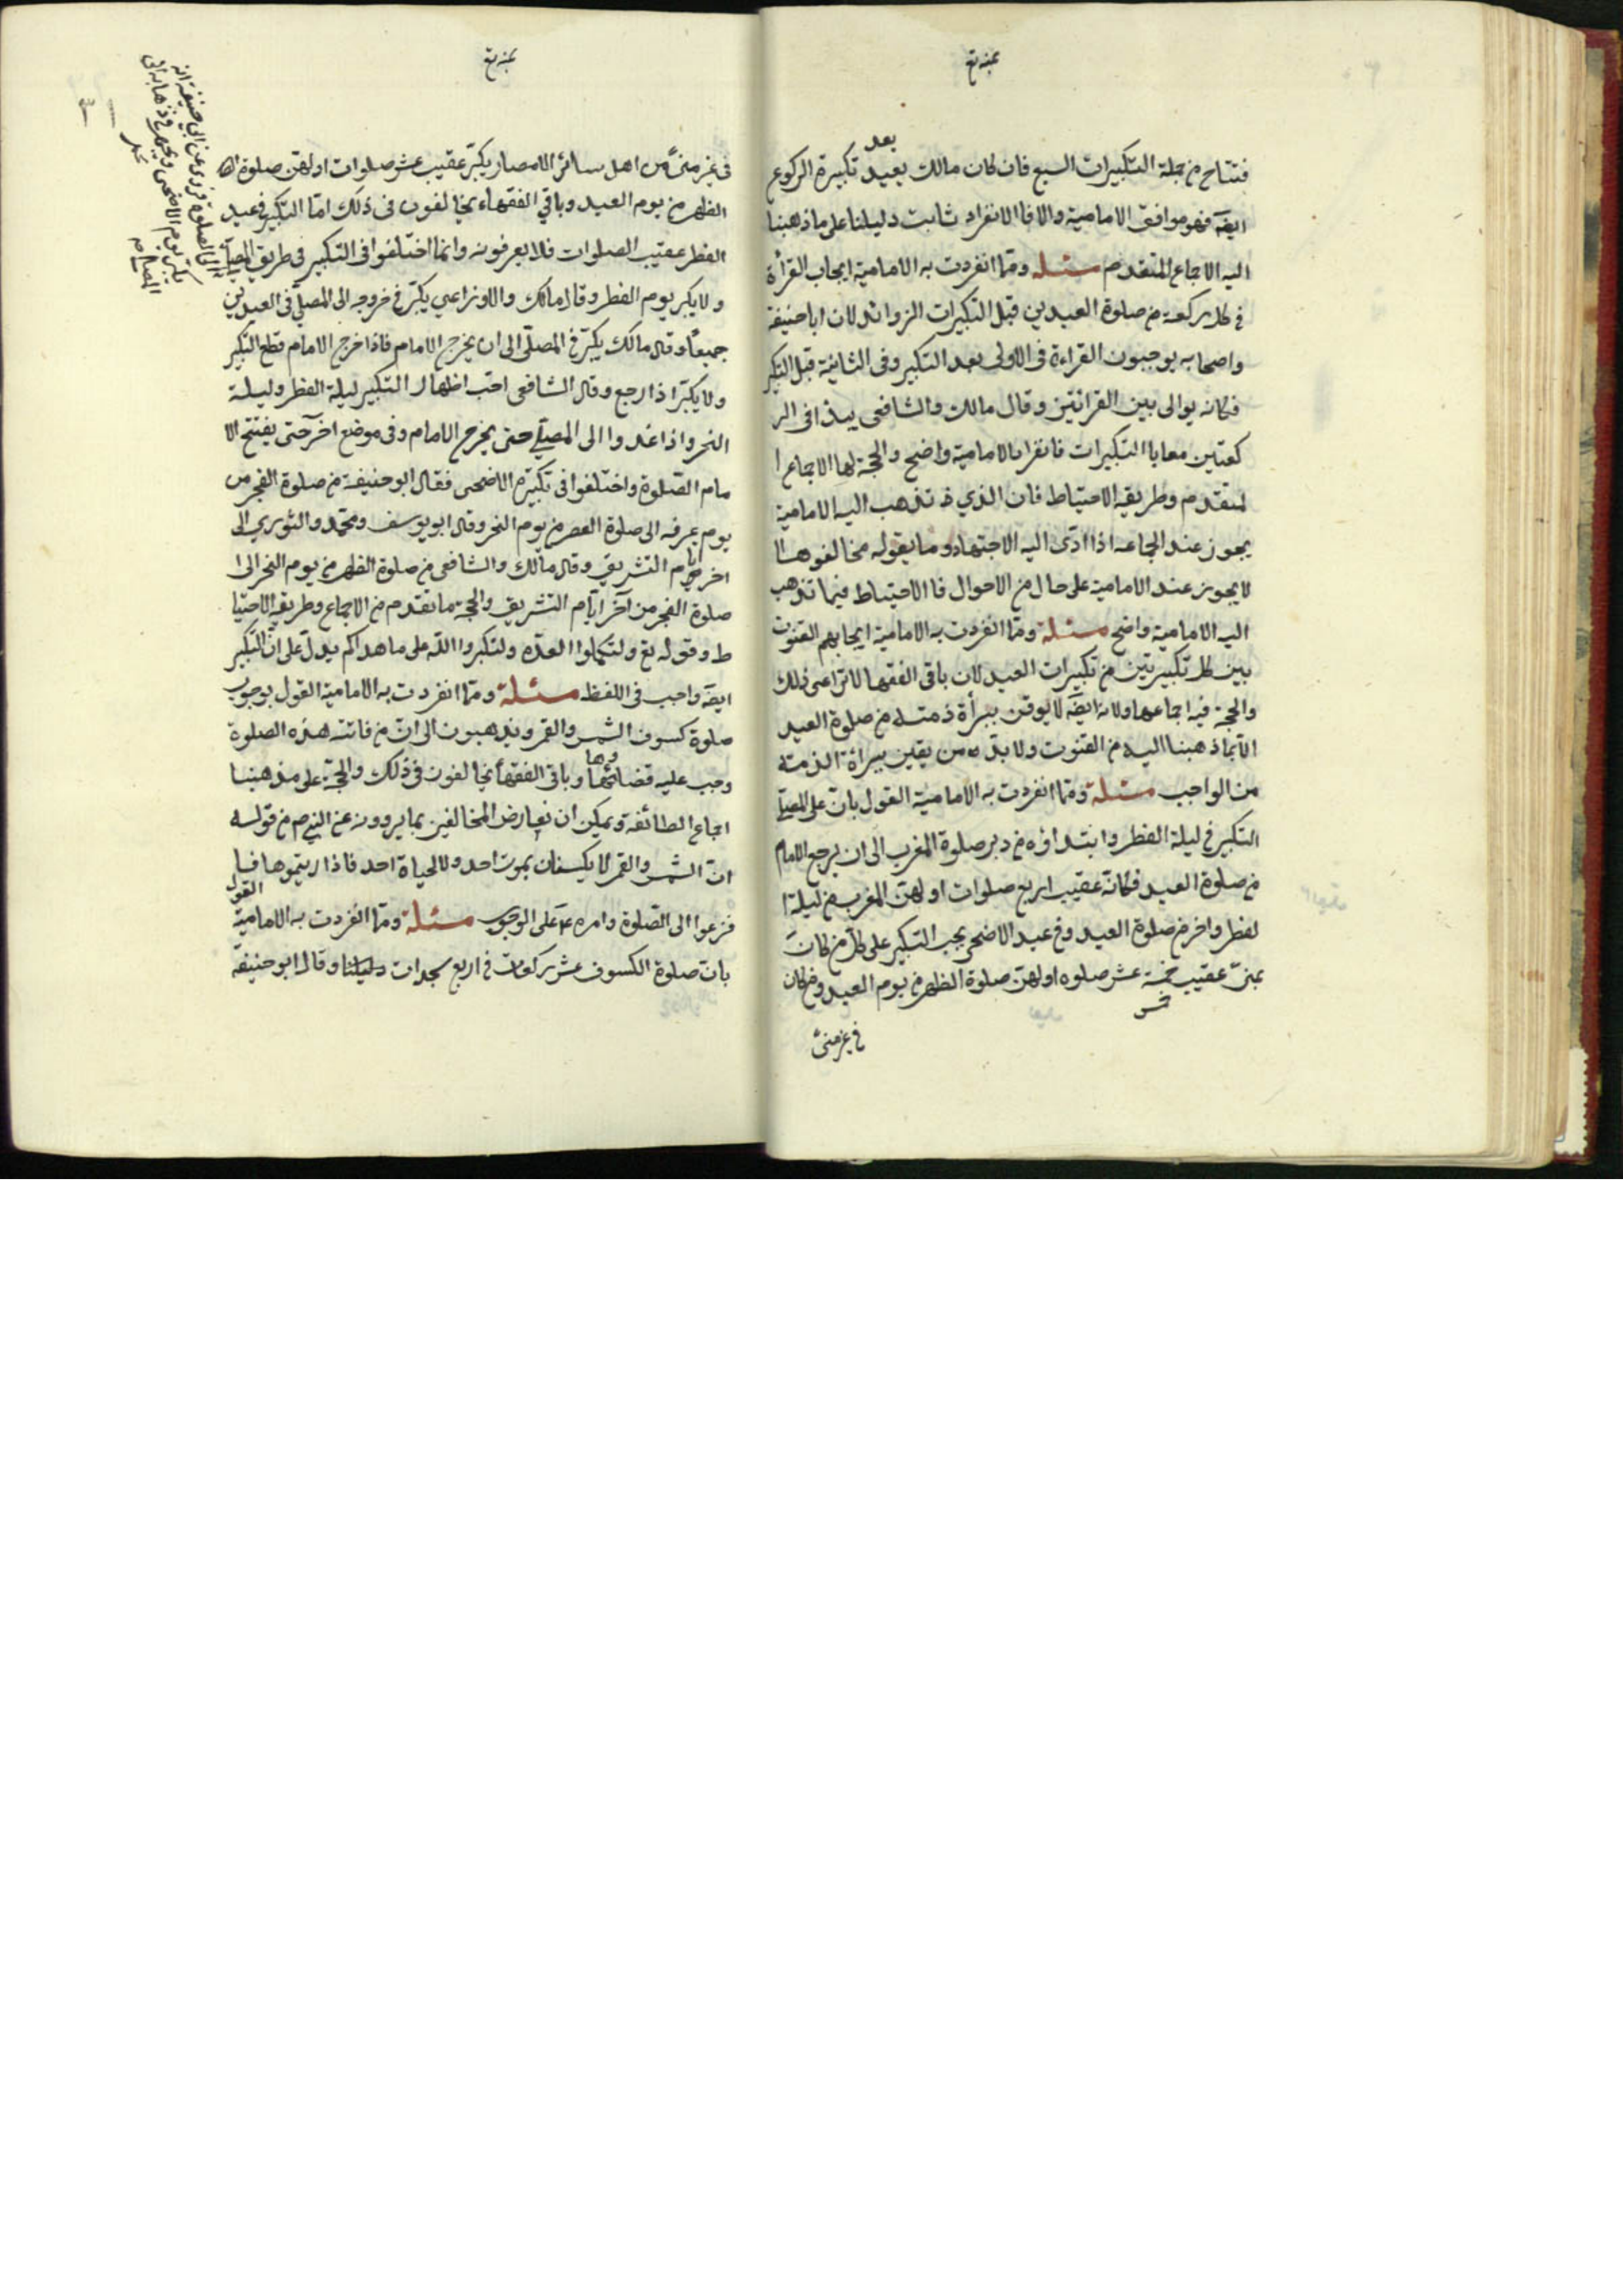 بمنه تع
بعد
فتتاح من جملة التكبيرات السبع فان كان مالك يعيد تكبيرة الركوع
ايضَ فهو موافق الامامية والا فالانفراد ثابت دليلنا على ما ذهبنا
اليه الاجماع المتقدم مسئله ومما انفردت به الامامية ايجاب القرأة
في كل ركعة من صلوة العيدين قبل التكبيرات الزوائد لان ابا حنيفة
واصحابه يوجبون القراءة في الاولى بعد التكبير وفي الثانية قبل التكبير
فكانه يوالى بين القرائتين وقال مالك والشافعي يبدا في الر
كعتين معا بالتكبيرات فانفراد الامامية واضح والحجة لها الاجماع ا
لمتقدم وطريقه الاحتياط فان الذي تذهب اليه الامامية
يجوز عند الجماعة اذا ادّى اليه الاجتهاد وما يقوله مخالفوها لا
لا يجوز عند الامامية على حال من الاحوال فالاحتياط فيما تذهب
اليه الامامية واضح مسئلة ومما انفردت به الامامية ايجابهم القنوت
بين كل تكبيرتين من تكبيرات العيد لان باقي الفقها لا تراعى ذلك
والحجة فيه اجماعها ولانه ايضَ لا يوقن ببرأة ذمته من صلوة العيد
الا بما ذهبنا اليه من القنوت ولا بد من يقين ببرائة الذمة
من الواجب مسئلة ومما انفردت به الامامية القول بان على المصلي
التكبير في ليلة الفطر وابتداؤه من دبر صلوة المغرب الى ان يرجع الامام
من صلوة العيد فكانه عقيب اربع صلوات اولهن المغرب من ليلة ا
لفطر واخرهن صلوة العيد وفي عيد الاضحى يجب التكبير على كل من كان
بمنى عقيب خمسة عشر صلوه اولهن صلوة الظهر من يوم العيد ومن كان
خمس
في غير منى
بمنه تع
٣١
في غير منى من اهل سائر الامصار يكبر عقيب عشر صلوات اولهن صلوة
الظهر من يوم العيد وباقي الفقهاء يخالفون في ذلك اما التكبير في عيد
الفطر عقيب الصلوات فلا يعرفونه وانما اختلفوا في التكبير في طريق المصلى
ولا يكبر يوم الفطر وقال مالك والاوزاعي يكبر في خروجه الى المصلى في العيدين
جميعا وقال مالك يكبر في المصلى الى ان يخرج الامام فاذا خرج الامام قطع التكبير
ولا يكبر اذا رجع وقال الشافعي احب اظهار التكبير ليلة الفطر وليلة
النحر واذا غدوا الى المصلى حتى يخرج الامام وفي موضع اخر حتى يفتتح الا
مام الصلوة واختلفوا في تكبيرة الاضحى فقال ابو حنيفة من صلوة الفجر من
يوم عرفه الى صلوة العصر من يوم النحر وقال ابو يوسف ومحمد والثوري الى
اخر ايام التشريق وقال مالك والشافعي من صلوة الظهر من يوم النحر الى ا
صلوة الفجر من آخر ايام التشريق والحجة ما تقدم من الاجماع وطريقه الاحتيا
ط وقوله تع ولتكملوا العدة ولتكبروا الله على ما هداكم يدل على ان التكبير
ايضَ واجب في اللفظ مسئلة ومما انفردت به الامامية القول بوجوب
صلوة كسوف الشمس والقمر ويذهبون الى ان من فاتته هذه الصلوة
وجب عليه قضائها وباقي الفقهأ يخالفون في ذلك والحجة على مذهبنا
اجماع الطائفة ويمكن ان نعارض المخالفين بما يروونه عن النبي ص من قوله
ان الشمس والقمر لا يكسفان بموت احد ولا لحياة احد فاذا رايتموها فا
القول
فزعوا الى الصلوة وامره ع على الوجوب مسئلة ومما انفردت به الامامية
بان صلوة الكسوف عشر ركعات في اربع سجدات دليلنا وقال ابو حنيفة